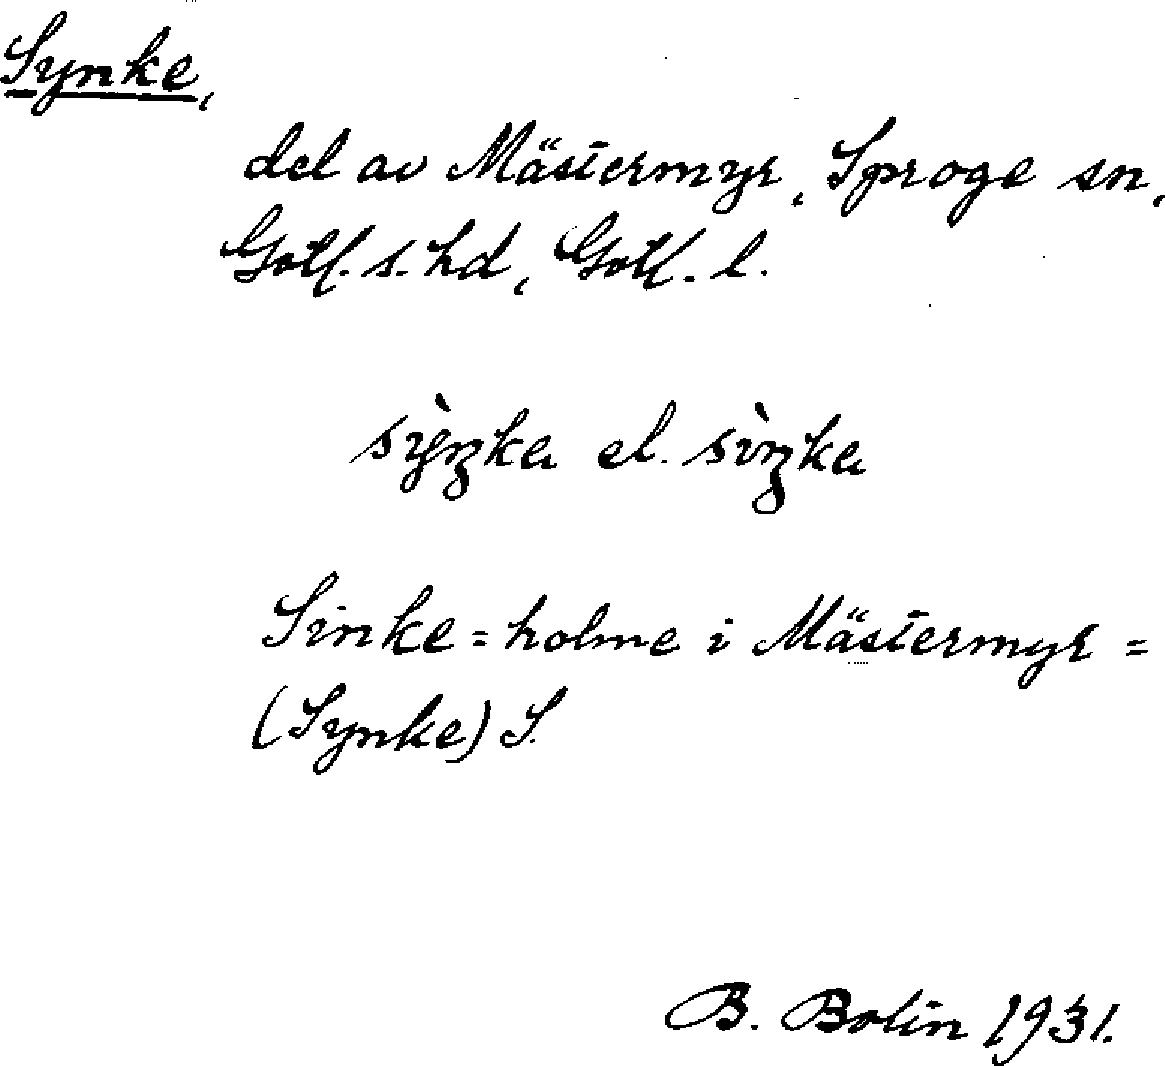 Synke,
del av Mästermyr, Sproge sn,
Gotl. s. hd, Gotl. l.
sỳŋka el. sìŋka
Sinke=holme i Mästermyr =
(Synke) S.
B. Bolin 1931.